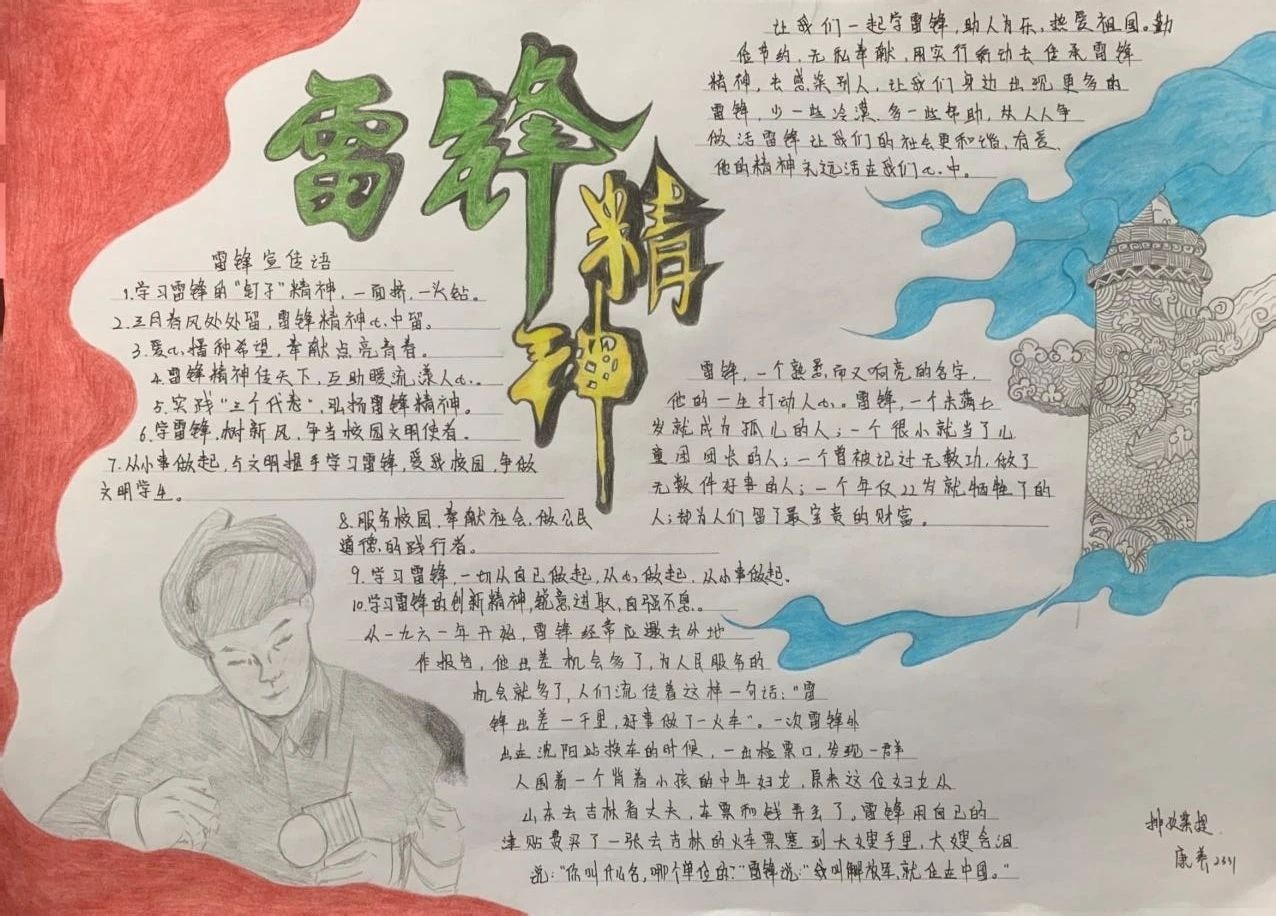 雷锋
精神
让我们一起学雷锋,助人为乐,热爱祖国。勤
俭节约,无私奉献,用实行行动去传承雷锋
精神,去感染别人,让我们身边出现更多的
雷锋,少一些冷漠,多一些帮助,从人人争
做活雷锋让我们的社会更和谐,有爱,
他的精神永远活在我们心中。
雷锋宣传语
1.学习雷锋的"钉子"精神,一面挤,一头钻。
2.三月春风处处留,雷锋精神心中留。
3.爱心播种希望,奉献点亮青春。
4.雷锋精神传天下,互助暖流漾人心。
5.实践"三个代表",弘扬雷锋精神。
6.学雷锋,树新风,争当校园文明使者。
7.从小事做起,与文明握手学习雷锋,爱我校园,争做
文明学生。
8.服务校园,奉献社会,做公民
道德的践行者。
9.学习雷锋,一切从自己做起,从心做起,从小事做起。
10.学习雷锋的创新精神,锐意进取,自强不息。
从一九六一年开始,雷锋经常应邀去外地
作报告,他出差机会多了,为人民服务的
机会就多了,人们流传着这样一句话:"雷
锋出差一千里,好事做了一火车"。一次雷锋外
出在沈阳站换车的时候,一出检票口,发现一群
人围着一个背着小孩的中年妇女,原来这位妇女从
山东去吉林看丈夫,车票和钱弄丢了。雷锋用自己的
津贴费买了一张去吉林的火车票塞到大嫂手里,大嫂含泪
说:"你叫什么名,哪个单位的?"雷锋说:"我叫解放军,就住在中国。"
雷锋,一个熟悉而又响亮的名字,
他的一生打动人心。雷锋,一个未满七
岁就成为孤儿的人;一个很小就当了儿
童团团长的人;一个曾被记过无数功,做了
无数件好事的人;一个年仅22岁就牺牲了的
人;却为人们留了最宝贵的财富。
康 2331